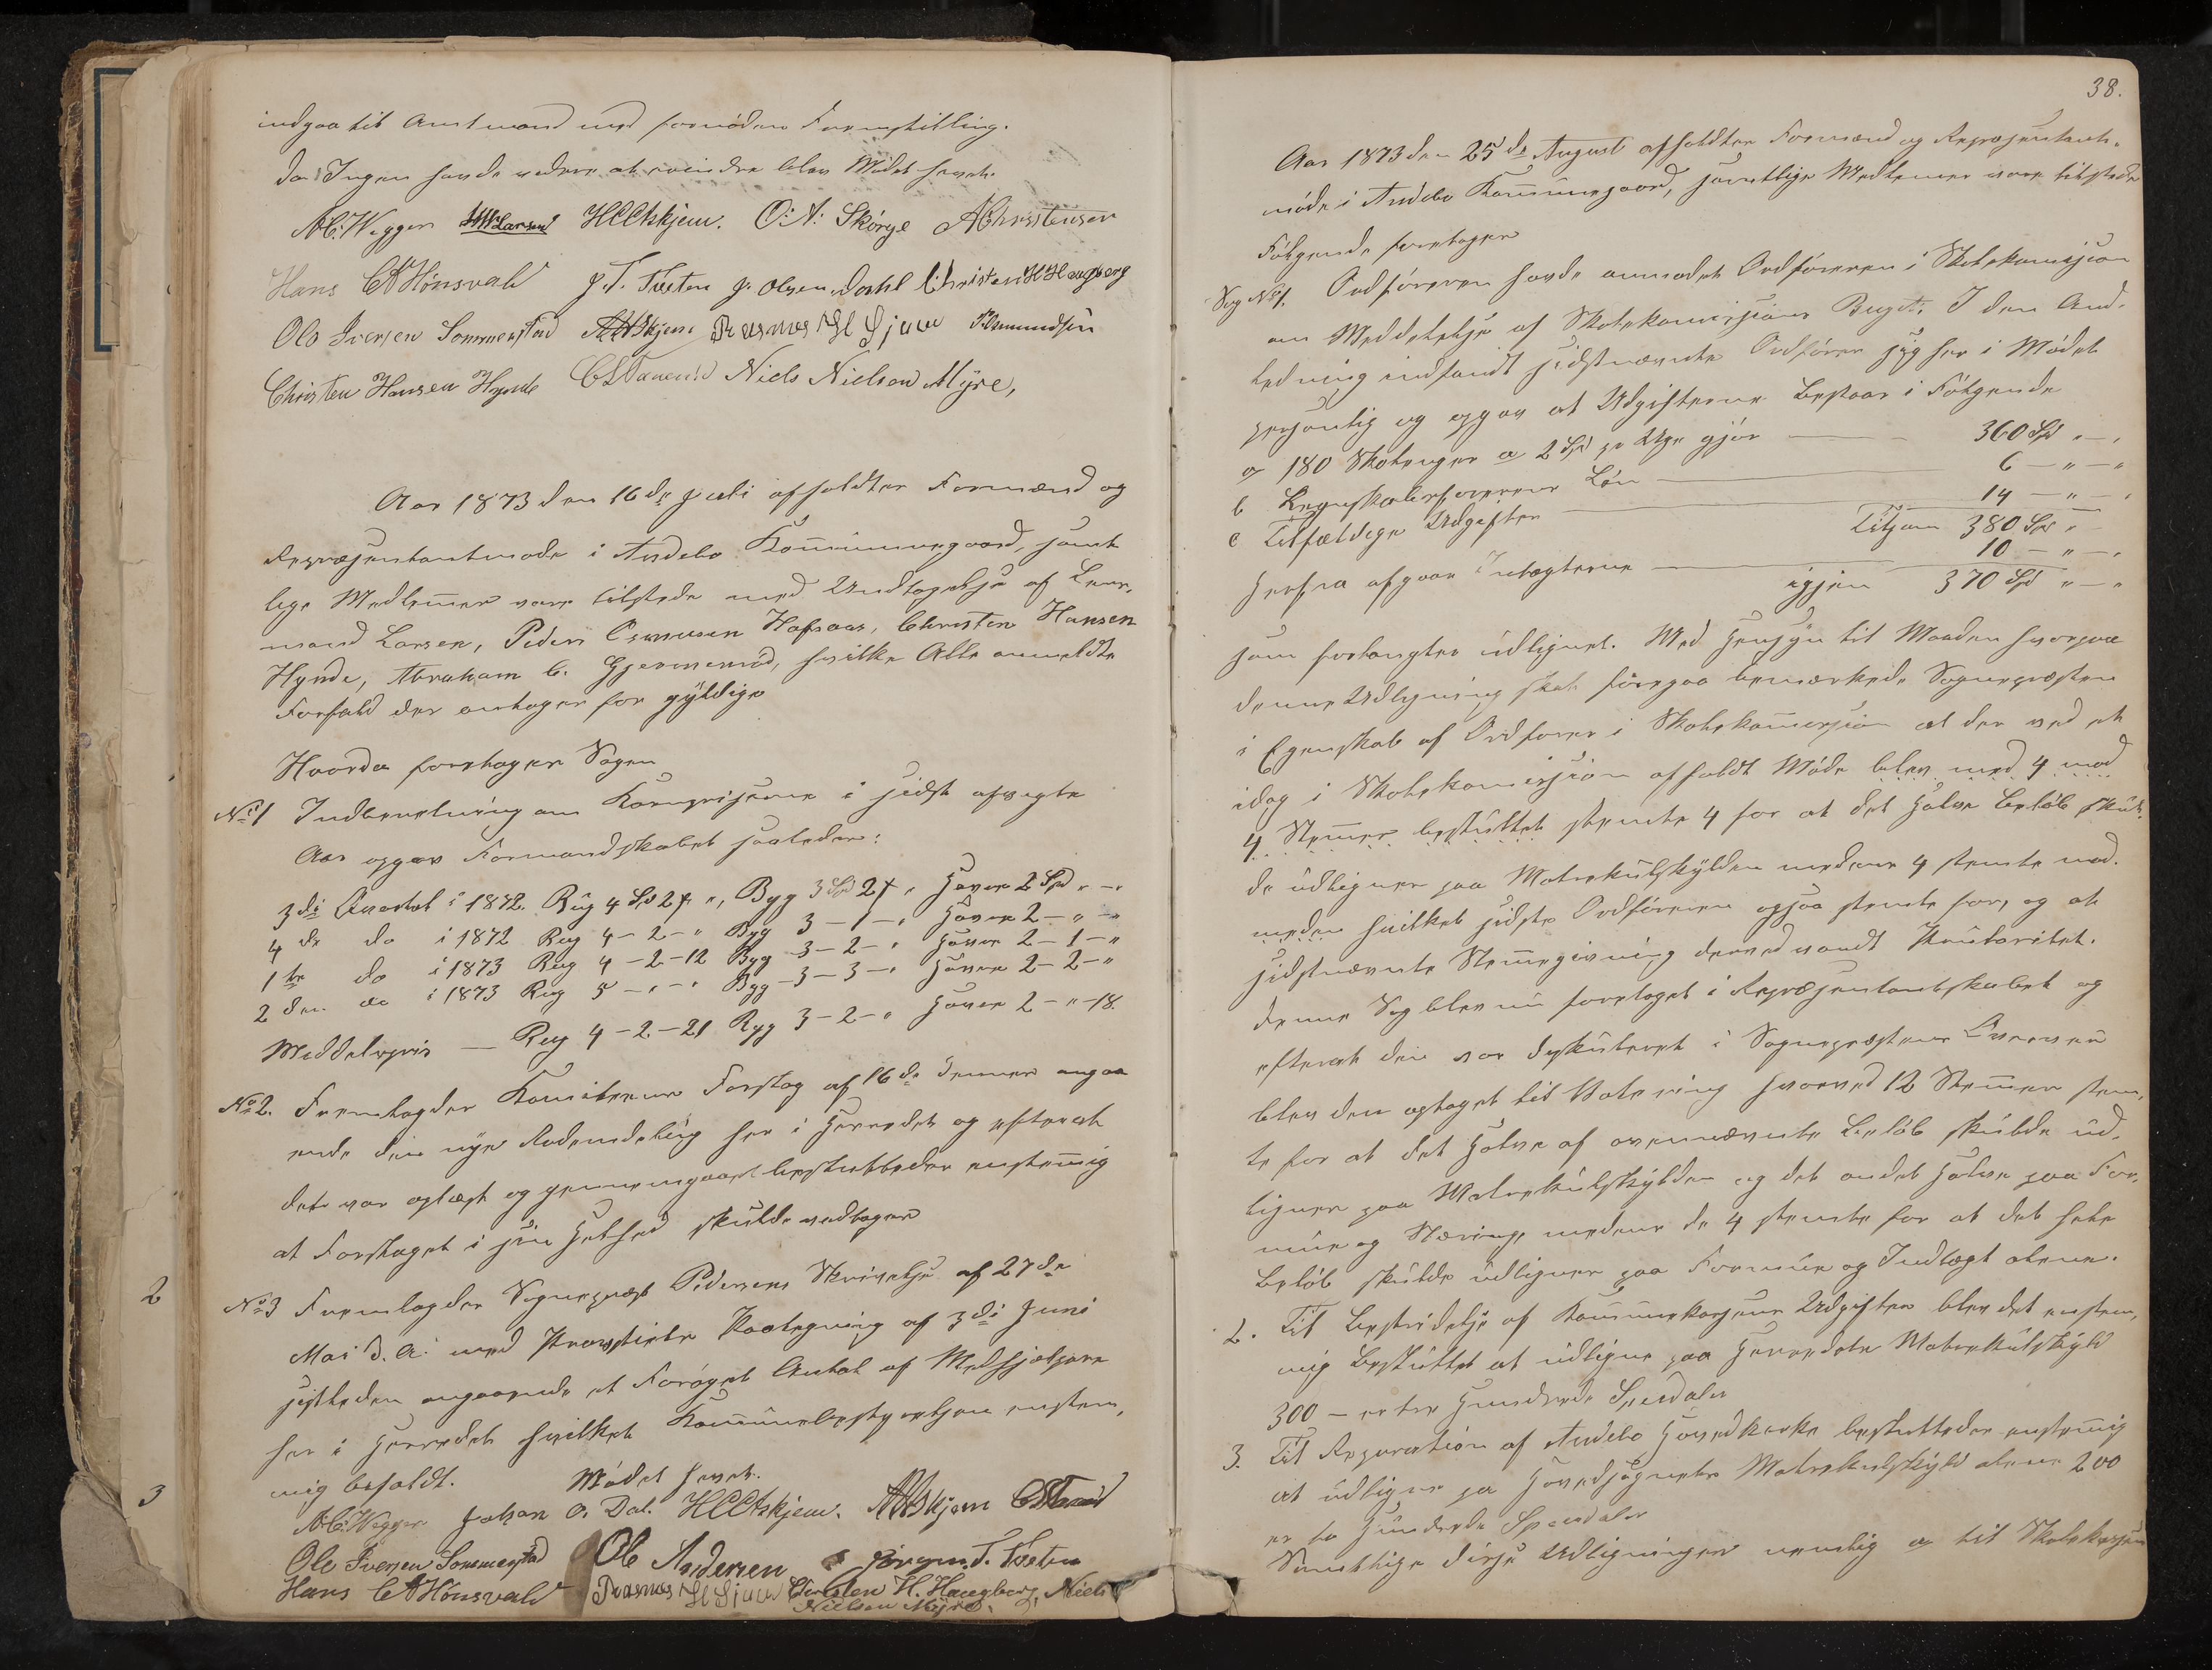 indgaa til Amtmand med fornöden Fremstilling.
da Ingen havde videre at erindre blev Mödet hævet.
A.C. Wegger HMLarsen HCAskjem. O. A. Skörge AChristensen
Hans CAHönsvald J. T. Tveten J. Olsen Dahl Christen H Haugberg
Ole Iversen Sommerstad AAskjem Rasmus H Gjuw
Christen Hansen Hynde Niels Nielsen Myre,
Aar 1873 den 16de Juli afholdtes Formænd og
Repræsentantmøde i Andebo Kommunegaard, samt
lige Medlemmer vare tilstede med Undtagelse af Lens-
mand Larsen, Peder Hafsaas, Christen Hansen
Hynde, Abraham C. Gjermundröd, hvilke Alle anmeldte
Forfald der antoges for gyldige
Hvorda foretages Sagen
No 1 Indberetning om Kornpriserne i sidst afvigte
Aar opgav Formandskabet saaledes:
3die Qvartal i 1872. Rug 4 Spd 2 " , Byg 3 Spd 2 " Havre 2 Spd " - "
4de do i 1872 Rug 4 - 2 - " Byg 3 - 1 - " Havre 2 - " - "
1te do i 1873 Rug 4 - 2 - 12 Byg 3 - 2 - " Havre 2 - 1 - "
2den do i 1873 Rug 5 - " - " Byg 3 - 3 - " Havre 2 - 2 - "
Middelpris — Rug 4 - 2 - 21 Byg 3 - 2 - " Havre 2 - " - 18.
No 2. Fremlagdes Komiteens Forslag af 16de dennes angaa
ende den nye Rodeindeling her i Herredet og efterat
det var oplæst og gjennemgaaet besluttedes enstemmig
at Forslaget i sin Helhed skulde vedtages
2
No 3 Fremlagdes Sognepræst Pedersens Skrivelse af 27de
Mai d. A. med Provstiets Paategning af 3die Juni
sidstleden angaaende et Forøget Antal af Medhjælpere
3
her i Herredet hvilket Kommunebestyrelsen enstem-
mig bifaldt. Mödet hævet.
A.C. Wegger Johan O. Dal. HCAskjem. AAskjem
Ole Iversen Sommerstad Ole Andersen Jörgen T. Tveten
Hans CAHönsvald Rasmus H Gjuw Christen H. Haugberg, Niels
Nielsen Myre.
38.
Aar 1873 den 25de August afholdtes Formænd og Repræsentant-
møde i Andebo Kommunegaard, samtlige Medlemer vare tilstede
Følgende foretoges
Sag No 1. Ordføreren havde anmodet Ordføreren i Skolekomisjion
om Meddelelse af Skolekomisjions Buget. I den And-
ledning indfandt sidstnævnte Ordfører sig her i Mødet
personlig og opgav at Udgifterne bestaar i Følgende
a 180 Skoleuger a 2 Spd pr Uge gjør — 360 Spd " - "
b Regnskabsførerens Løn — 6 - " - "
c Tilfældige Udgifter — 14 - " - "
Tilsam 380 Spd "
Herfra afgaar Indtægterne — 10 - " - "
igjen 370 Spd " - "
som forlangtes udlignet. Med Hensyn til Maaden hvorpaa
denne Udligning skal foregaa bemærkede Sognepræsten
i Egenskab af Ordfører i Skolekommisjion at der ved et
idag i Skolekomisjion afholdt Møde blev med 4 mod
4 Stemmer besluttet stemte 4 for at det Halve beløb skul-
de udlignes paa Matrikulskylden medens 4 stemte mod.
meden hvilket sidste Ordføreren ogsaa stemte for, og at
sidstnævnte Stemmegivning derved vandt Pluralitet.
denne Sag blev nu foretaget i Repræsentantskabet og
efterat den var diskuteret i Sognepræstens Overvær
blev den optaget til Votering hvorved 12 Stemmer stem-
te for at det Halve af ovennævnte Beløb skulde ud-
lignes paa Matrikulskylden og det andet Halve paa For-
mue og Næring, medens de 4 stemte for at det hele
Beløb skulde udlignes paa Formue og Indtægt alene.
2. Til Bestridelse af Kommunekassens Udgifter blev det enstem-
mig besluttet at udligne paa Herredets Matrikulskyld
300 — er tre Hundrede Speidaler
3. Til Reparation af Andebo Hovedkirke besluttedes enstemmig
at udligne pa Hovedsognets Matrikulskyld alene 200
er to Hundrede Speidaler
Samtlige disse Udligninger nemlig a til Skolekassen